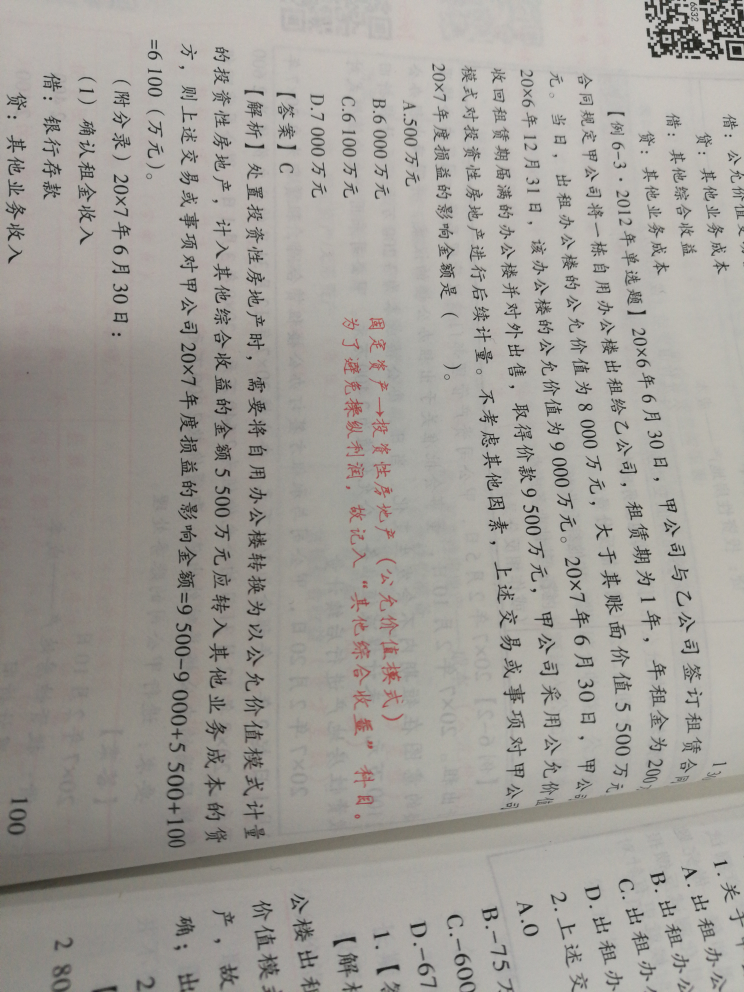 6532
借：公允价值变
贷：其他业务成本
借：其他综合收益
贷：其他业务成本
【例6-3·2012年单选题】20×6年6月30日，甲公司与乙公司签订租赁合同
合同规定甲公司将一栋自用办公楼出租给乙公司，租赁期为1年，年租金为200
元。当日，出租办公楼的公允价值为8 000万元，大于其账面价值5 500万元
20×6年12月31日，该办公楼的公允价值为9 000万元。20×7年6月30日，甲公
收回租赁期届满的办公楼并对外出售，取得价款9 500万元，甲公司采用公允价值
模式对投资性房地产进行后续计量。不考虑其他因素，上述交易或事项对甲公司
20×7年度损益的影响金额是（　　）。
A.500万元
B.6 000万元
C.6 100万元
D.7 000万元
固定资产→投资性房地产（公允价值模式）
为了避免操纵利润，故记入“其他综合收益”科目。
【答案】C
【解析】处置投资性房地产时，需要将自用办公楼转换为以公允价值模式计量
的投资性房地产，计入其他综合收益的金额5 500万元应转入其他业务成本的贷
方，则上述交易或事项对甲公司20×7年度损益的影响金额=9 500-9 000+5 500+100
=6 100（万元）。
（附分录）20×7年6月30日：
（1）确认租金收入
借：银行存款
贷：其他业务收入
100
1.关于
A.出租办公
B.出租办公
C.出租办
D.出租办
2.上述交
A.0
B.-75
C.-600
D.-67
1.【
【解
公楼出租
价值模
产，故
确；出
2
2 80